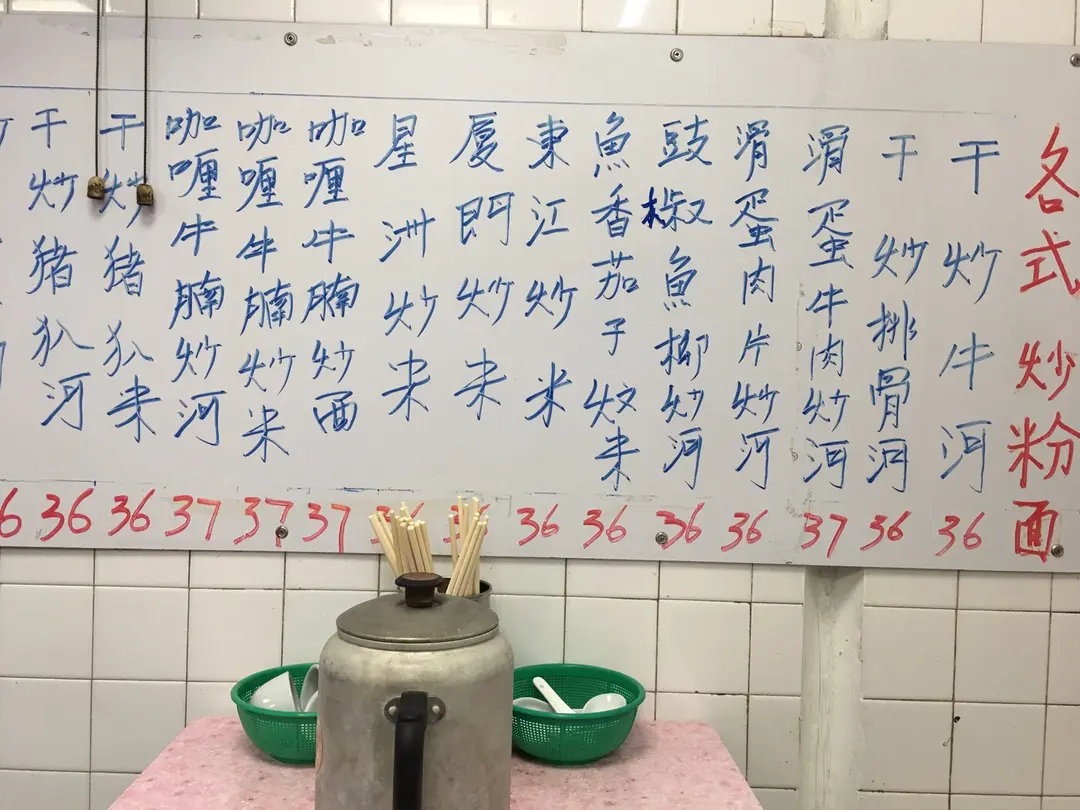 各式炒粉面
干炒牛河
36
干炒排骨河
36
滑蛋牛肉炒河
37
滑蛋肉片炒河
36
豉椒魚柳炒河
36
魚香茄子炆米
36
東江炒米
36
厦門炒米
星洲炒米
咖喱牛腩炒面
37
咖喱牛腩炒米
37
咖喱牛腩炒河
37
干炒猪扒米
36
干炒猪扒河
36
6